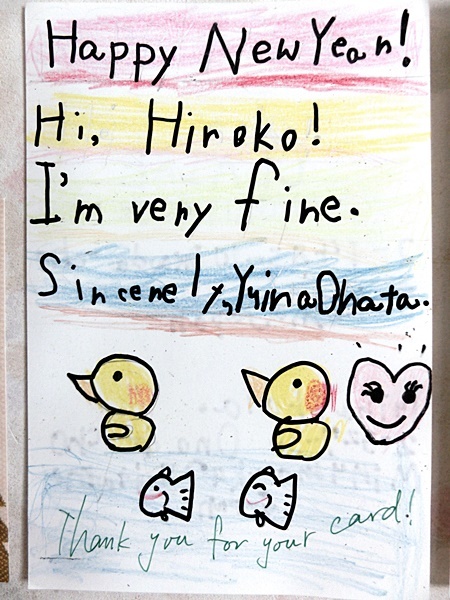 Happy New Year!
Hi, Hiroko!
I'm very fine.
Sincerely, Yuina Ohata.
Thank you for your card!